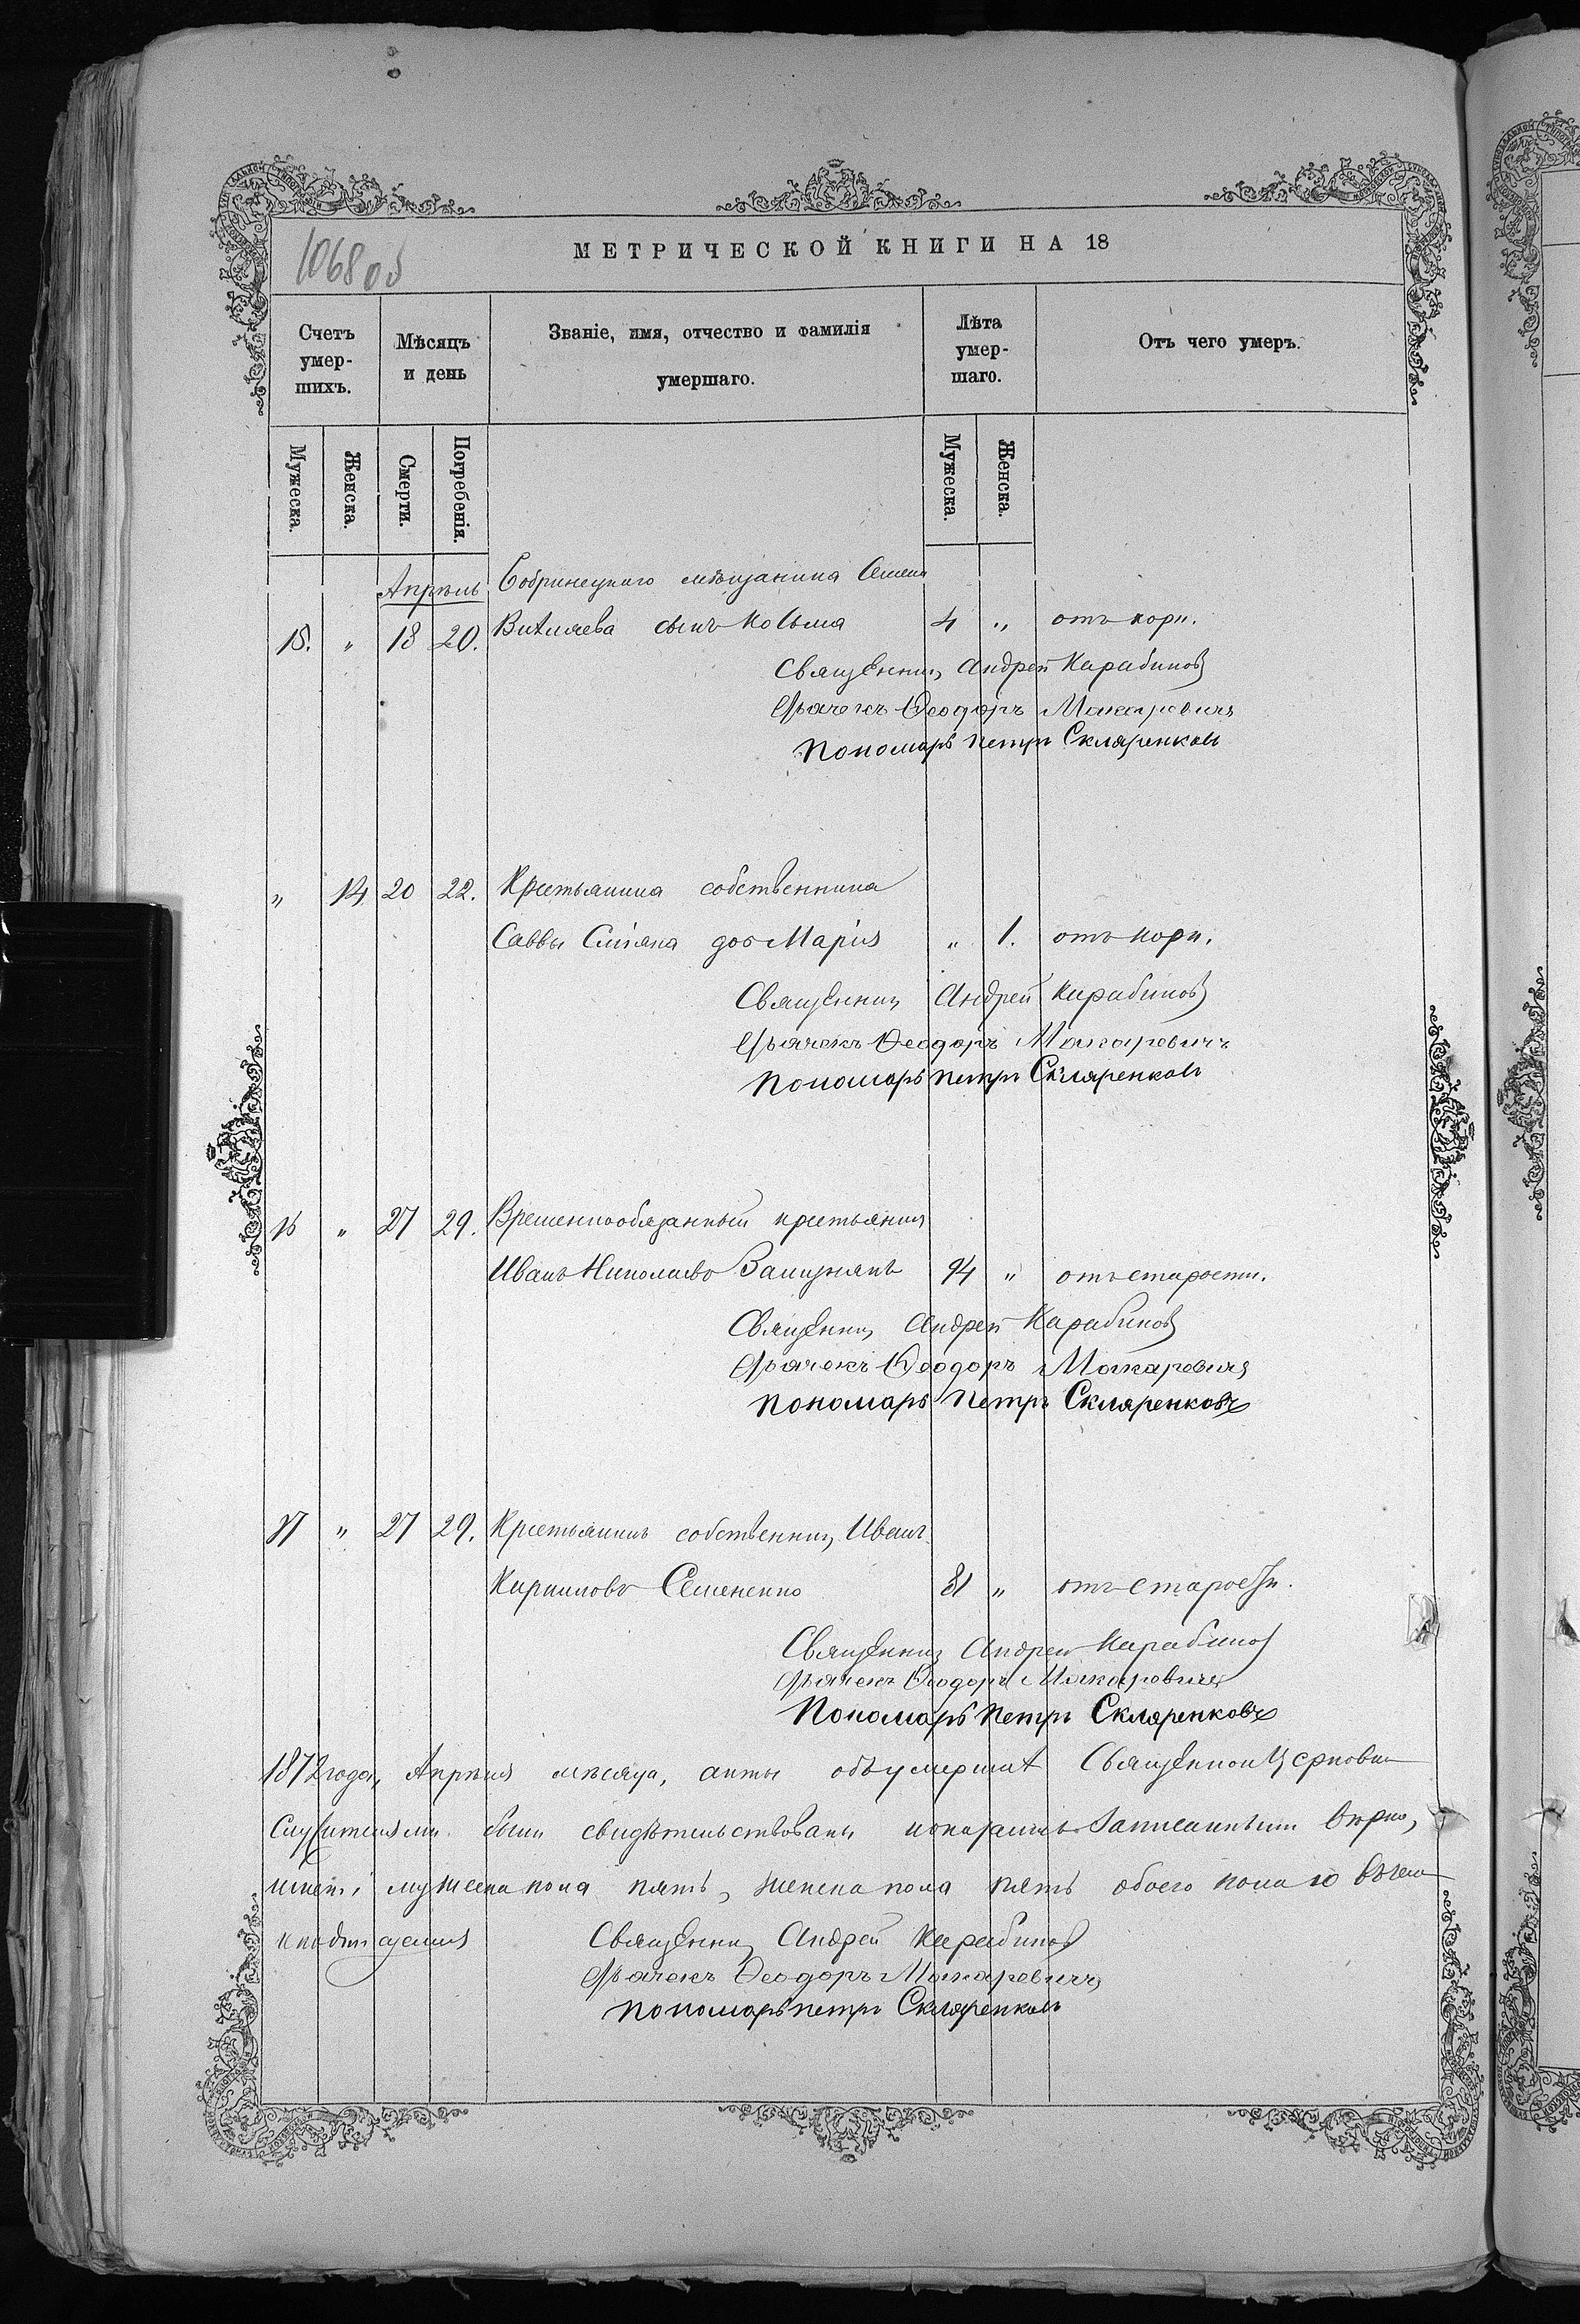 1068 об
МЕТРИЧЕСКОЙ КНИГИ НА 18
Счетъ умер-шихъ.
Мѣсяцъ и день
Званіе, имя, отчество и фамилія умершаго.
Лѣта умер-шаго.
Отъ чего умеръ.
Мужеска. Женска. Смерти. Погребенія. Мужеска. Женска.
Апрѣль Бобринецкаго мѣщанина Семена
15. " 18 20. сынъ Козьма 4 " отъ кори.
Священникъ Андрей Карабиновъ
Дьячекъ Ѳеодоръ Макаревичъ
Пономарь Петръ Скляренковъ
" 14 20 22. Крестьянина собственника
Саввы доч Марія " 1. отъ кори.
Священникъ Андрей Карабиновъ
Дьячекъ Ѳеодоръ Макаревичъ
Пономарь Петръ Скляренковъ
16 " 27 29. Временнообязанный крестьянинъ
Иванъ Николаевъ 94 " отъ старости.
Священникъ Андрей Карабиновъ
Дьячекъ Ѳеодоръ Макаревичъ
Пономарь Петръ Скляренковъ
17 " 27 29. Крестьянинъ собственникъ Иванъ
Кирилловъ Семененко 81 " отъ старости.
Священникъ Андрей Карабиновъ
Дьячекъ Ѳеодоръ Макаревичъ
Пономарь Петръ Скляренковъ
1872 года, Апрѣля мѣсяца, акты объ умершихъ Священно Церковно
Служителями были свидѣтельствованы и оказались записанными вѣрно,
мужеска пола пять, женска пола пять обоего пола 10 въ чемъ
и подписуемся Священникъ Андрей Карабиновъ
Дьячекъ Ѳеодоръ Макаревичъ
Пономарь Петръ Скляренковъ